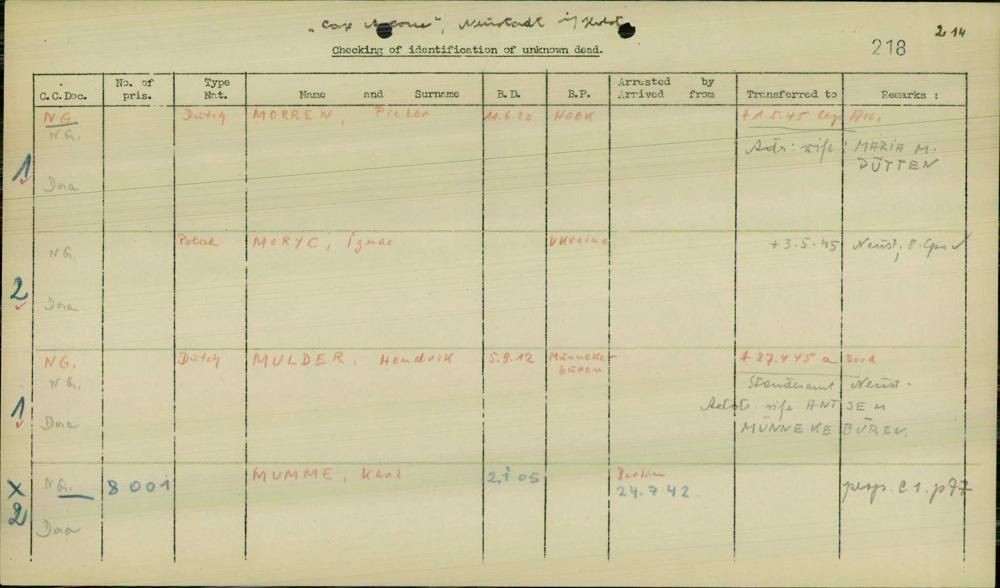 "Cap Arcona", Neustadt i/Holst
214
218
Checking of identification of unknown dead.
C.C.Doc. No. of pris. Type Nat. Name and Surname B.D. B.P. Arrested by Arrived from Transferred to Remarks :
NG. Dutch MORREN, Pieter 11.6.20 HOEK + 1.5.45 Cap Arc.
NG.
Adr: wife: MARIA M.
DÜTTEN
1
Dora
Polish MORYC, Ignac Ukraine + 3.5.45 Neust,
NG.
2
Dora
NG. Dutch MULDER, Hendrik 5.9.12 Münneke-
büren
+ 27.4.45 a bord
NG.
Standesamt Neust.
wife ANTJE M
1
Dora
MÜNNEKEBÜREN.
X
NG. 8001 MUMME, Karl 2.1.05 Berlin
24.7.42
2
Dora